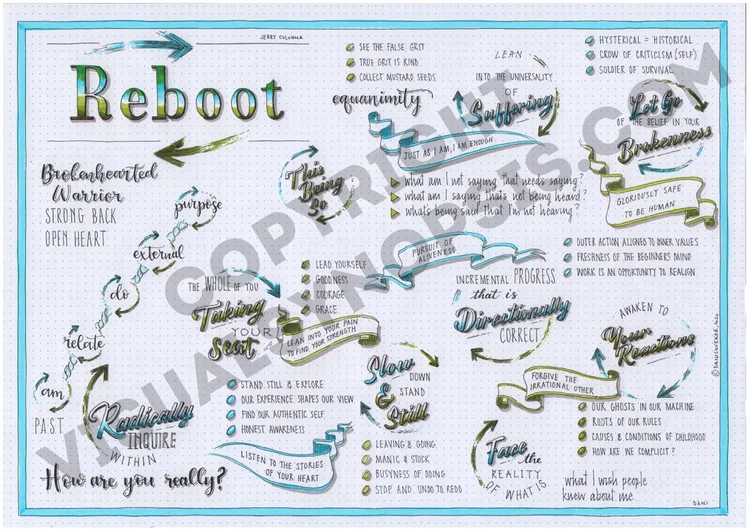 JERRY COLONNA
Reboot
Brokenhearted
Warrior
STRONG BACK
OPEN HEART
purpose
external
do
relate
am
PAST
SEE THE FALSE GRIT
TRUE GRIT IS KIND
COLLECT MUSTARD SEEDS
equanimity
LEAN
INTO THE UNIVERSALITY
OF
Suffering
JUST AS I AM, I AM ENOUGH
HYSTERICAL = HISTORICAL
CROW OF CRITICISM (SELF)
SOLDIER OF SURVIVAL
Let Go
OF THE BELIEF IN YOUR
Brokenness
GLORIOUSLY SAFE
TO BE HUMAN
This
Being
So
what am I not saying that needs saying?
what am I saying that's not being heard?
what's being said that I'm not hearing?
PURSUIT OF
ALIVENESS
OUTER ACTION ALIGNED TO INNER VALUES
FRESHNESS OF THE BEGINNERS MIND
WORK IS AN OPPORTUNITY TO REALIGN
THE WHOLE OF YOU
Taking
YOUR
Seat
LEAD YOURSELF
GOODNESS
COURAGE
GRACE
LEAN INTO YOUR PAIN
TO FIND YOUR STRENGTH
INCREMENTAL PROGRESS
that is
Directionally
CORRECT
AWAKEN TO
Your
Reactions
FORGIVE THE
IRRATIONAL OTHER
OUR GHOSTS IN OUR MACHINE
ROOTS OF OUR RULES
CAUSES & CONDITIONS OF CHILDHOOD
HOW ARE WE COMPLICIT?
Radically
INQUIRE
WITHIN
How are you really?
STAND STILL & EXPLORE
OUR EXPERIENCE SHAPES OUR VIEW
FIND OUR AUTHENTIC SELF
HONEST AWARENESS
LISTEN TO THE STORIES
OF YOUR HEART
Slow
DOWN
&
STAND
Still
LEAVING & GOING
MANIC & STUCK
BUSYNESS OF DOING
STOP AND UNDO TO REDO
Face the
REALITY
OF WHAT IS
what I wish people
knew about me
DANI
COPYRIGHT
VISUALSYNOPSIS.COM